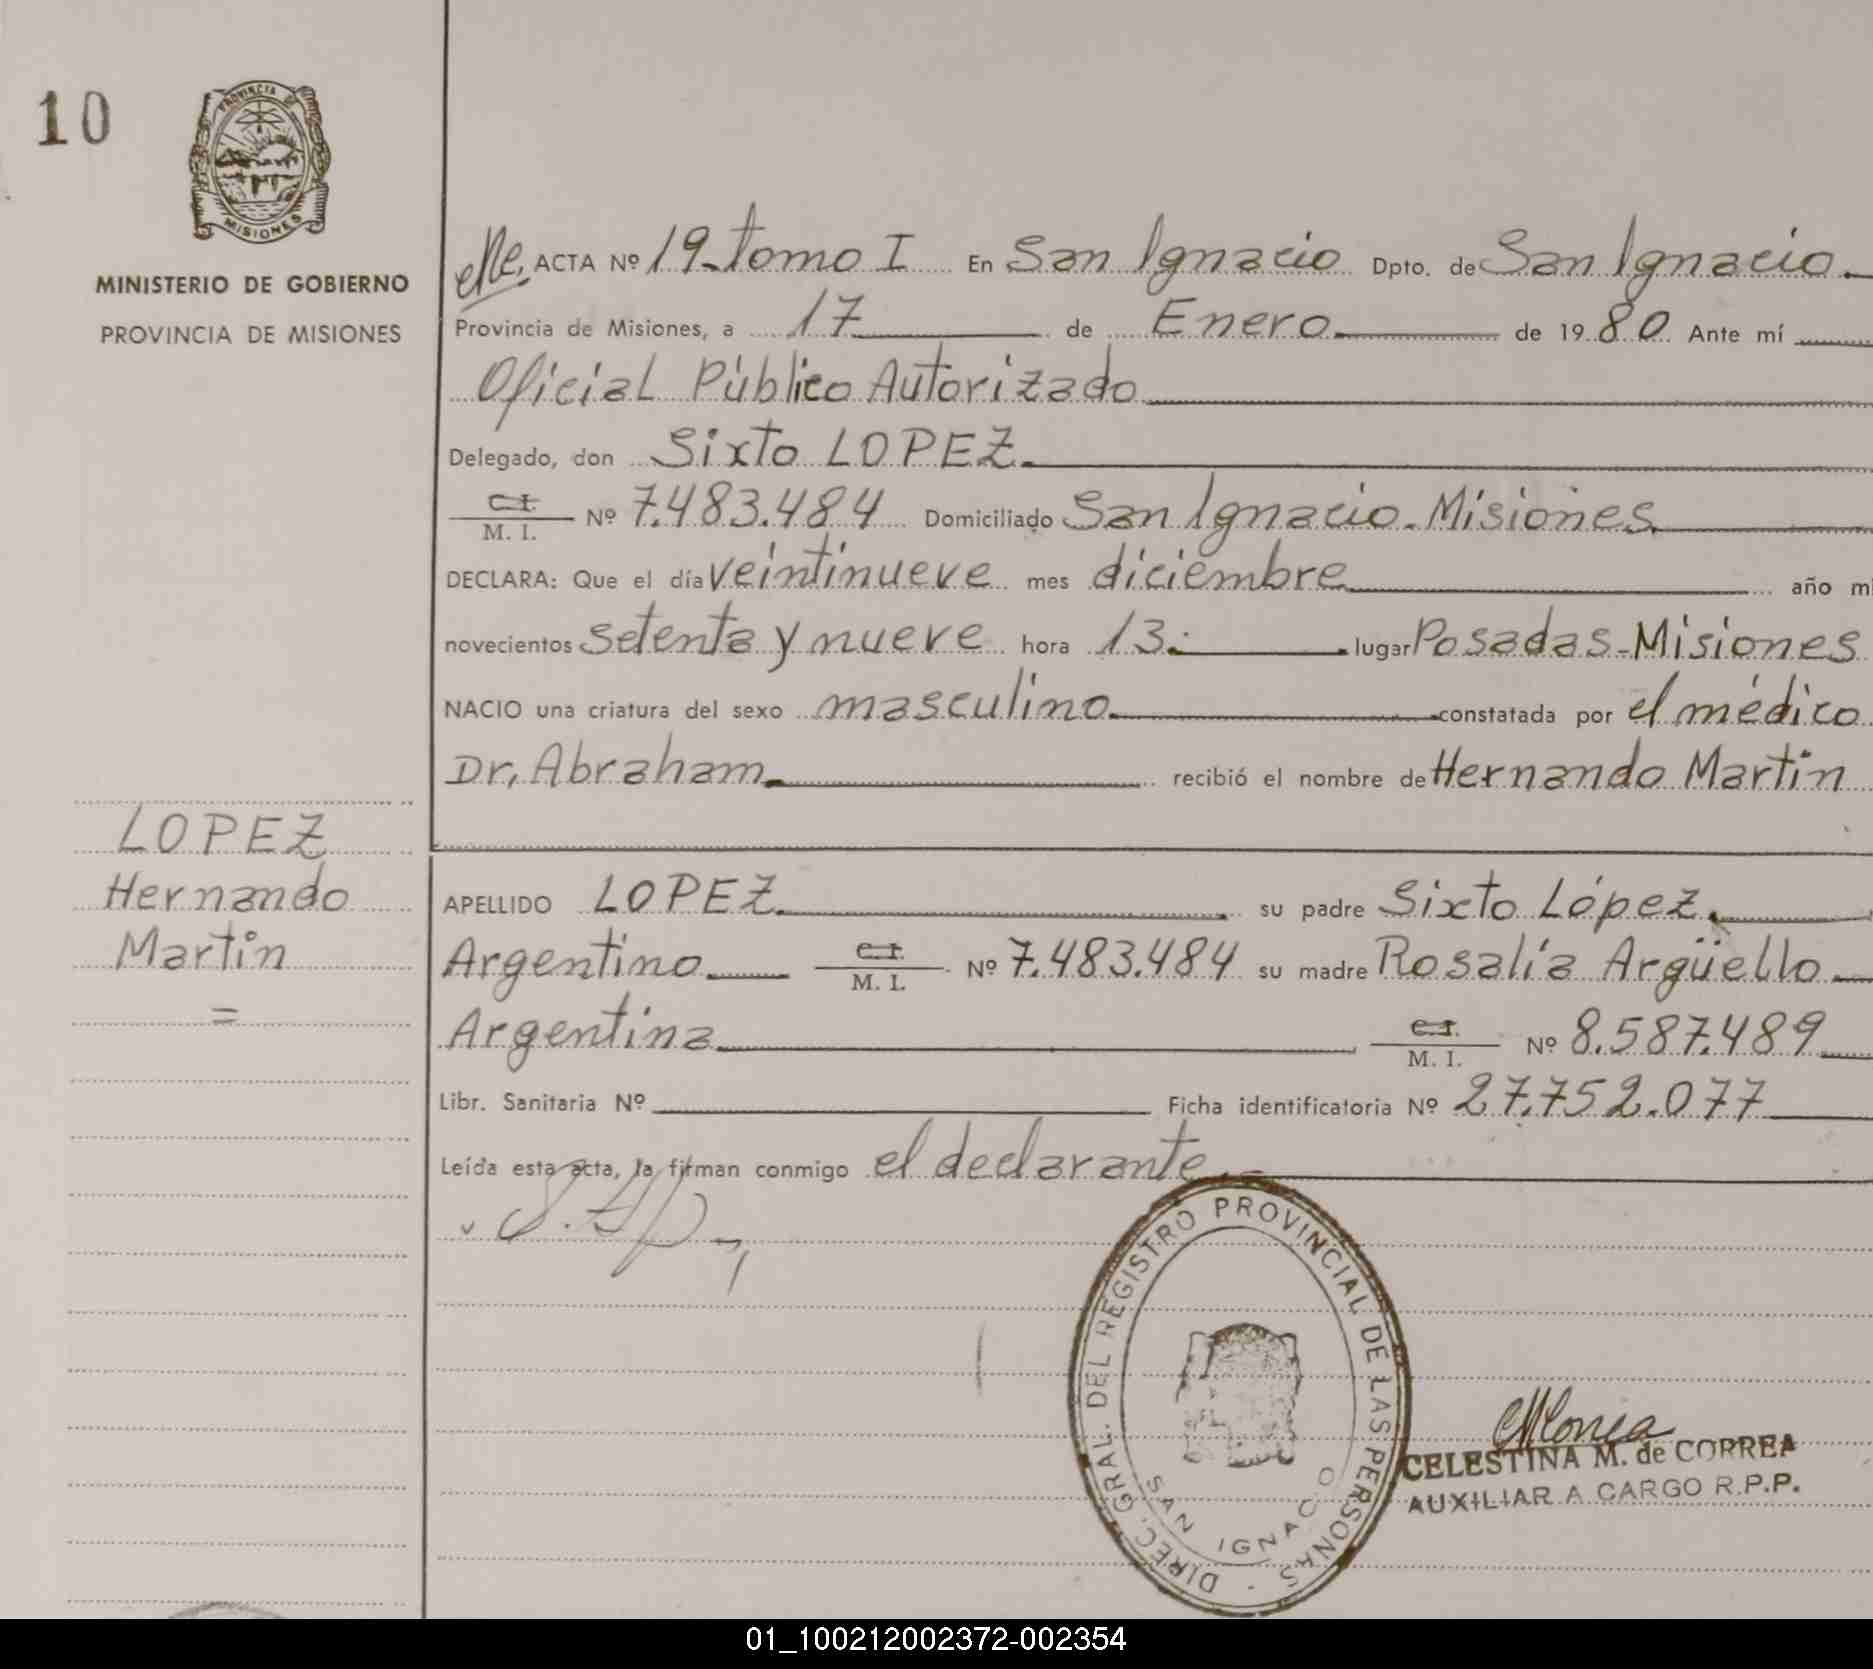 10
PROVINCIA DE
MISIONES
MINISTERIO DE GOBIERNO
PROVINCIA DE MISIONES
ACTA Nº 19-tomo I En San Ignacio Dpto. de San Ignacio.
Provincia de Misiones, a 17 de Enero de 1980 Ante mí
Oficial Público Autorizado
Delegado, don Sixto LOPEZ.
C.I.
M. I. Nº 7.483.484 Domiciliado San Ignacio-Misiones
DECLARA: Que el día veintinueve mes diciembre año mi
novecientos setenta y nueve hora 13. lugar Posadas-Misiones
NACIO una criatura del sexo masculino constatada por el médico
Dr, Abraham recibió el nombre de Hernando Martin
LOPEZ
Hernando
Martin
=
APELLIDO LOPEZ su padre Sixto López
Argentino C.I.
M. I. Nº 7.483.484 su madre Rosalía Argüello
Argentina C.I.
M. I. Nº 8.587.489
Libr. Sanitaria Nº Ficha identificatoria Nº 27.752.077
Leída esta acta, la firman conmigo el declarante
DIREC. GRAL. DEL REGISTRO PROVINCIAL DE LAS PERSONAS
SAN IGNACIO
CELESTINA M. de CORREA
AUXILIAR A CARGO R.P.P.
01_100212002372-002354